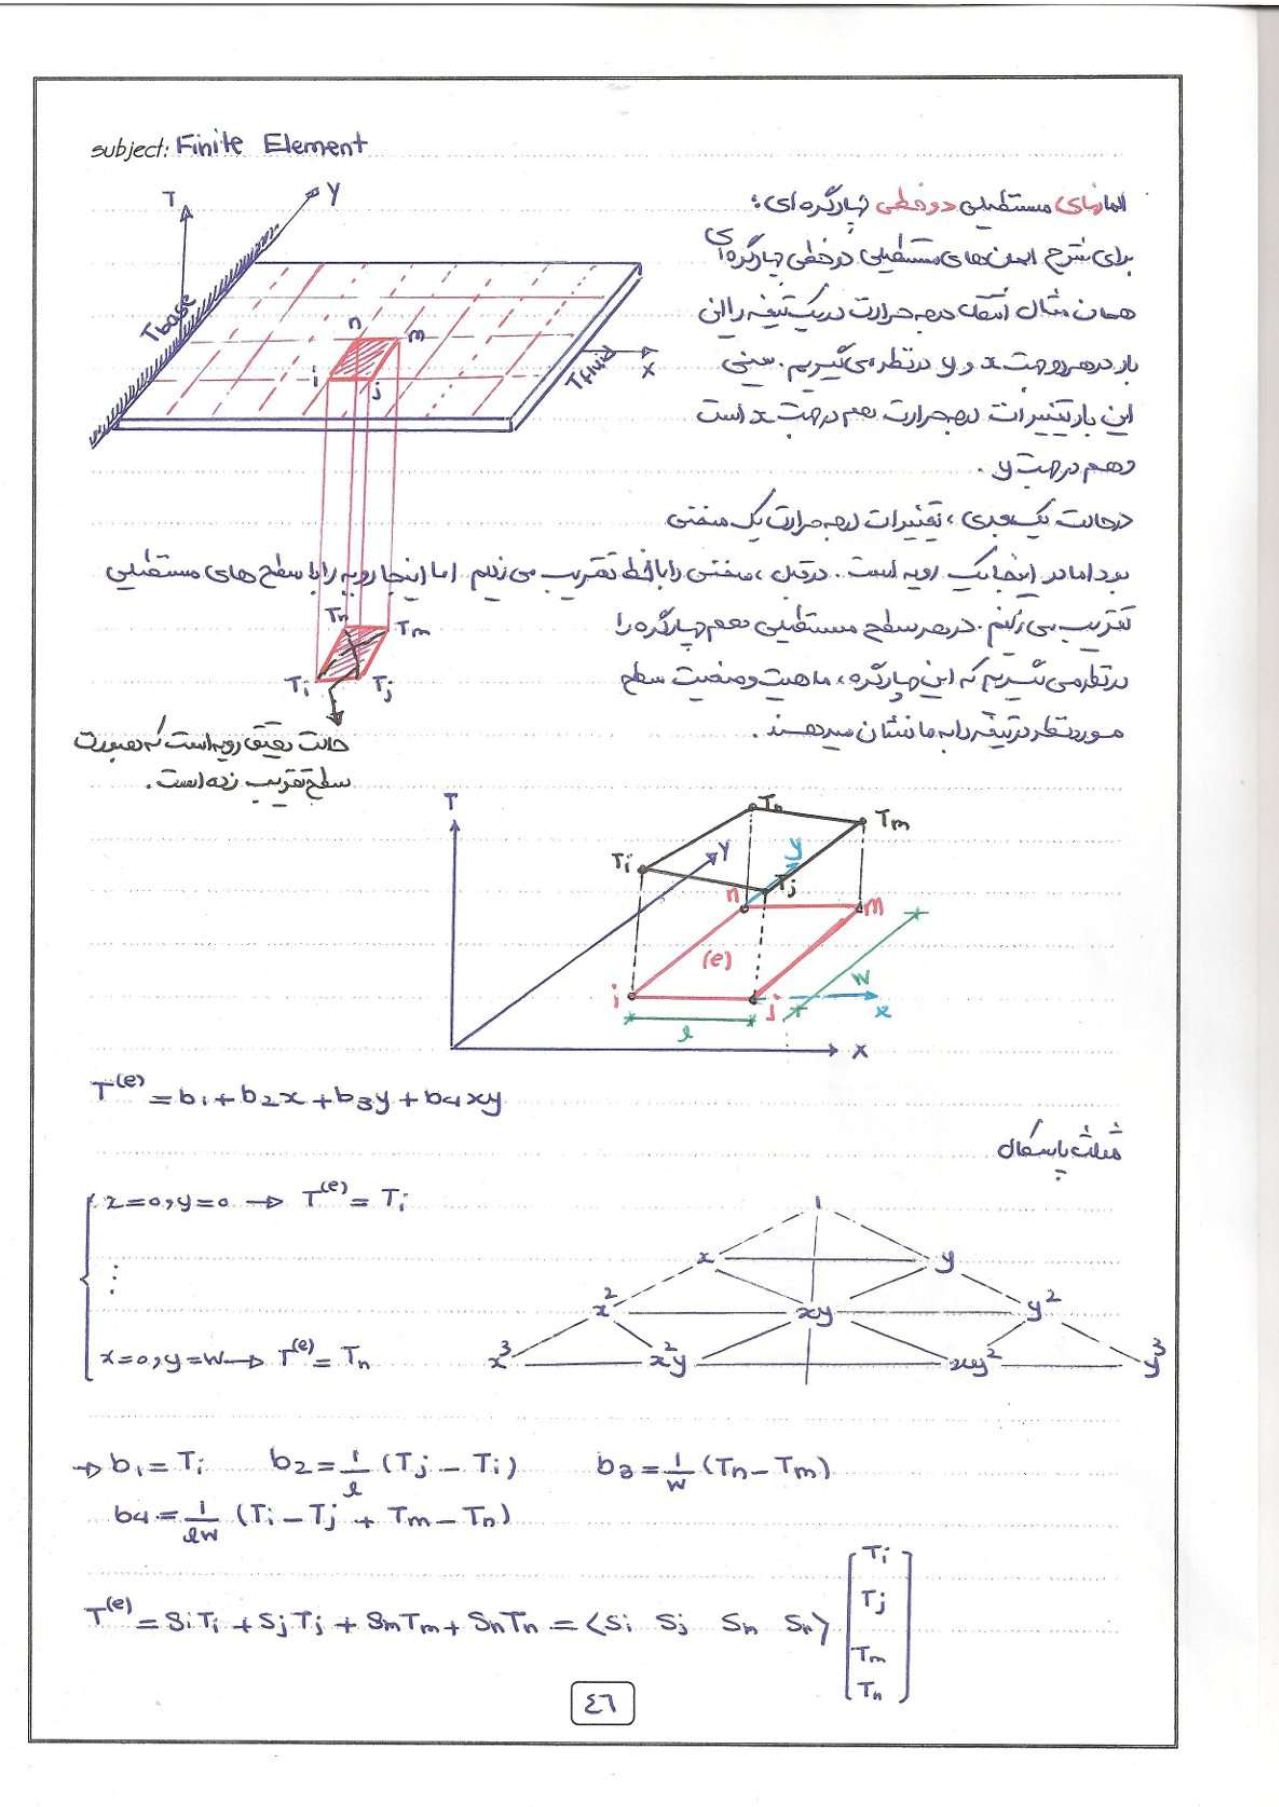 subject: Finite Element
المانهای مستطیلی دوخطی چهارگره ای:
برای شرح المان های مستطیلی دوخطی چهارگره ای
همان مثال انتقال درجه حرارت در یک تیغه را این
بار در هر دو جهت x و y در نظر می گیریم. یعنی
این بار تغییرات درجه حرارت هم در جهت x است
و هم در جهت y.
در حالت یک بعدی، تغییرات درجه حرارت یک منحنی
بود اما در اینجا یک رویه است. در قبل، منحنی را با خط تقریب می زدیم اما اینجا رویه را با سطح های مستطیلی
تقریب می زنیم. در هر سطح مستطیلی هم چهار گره را
در نظر می گیریم که این چهار گره، ماهیت وضعیت سطح
مورد نظر در تیغه را به ما نشان میدهند.
T
Y
Tbase
n
m
i
j
Tfluid
X
Tn
Tm
Ti
Tj
حالت دقیق رویه است که بصورت
سطح تقریب زده است.
T
Tn
Tm
Ti
Y
y
Tj
n
m
(e)
i
j
w
x
l
X
T(e) = b1 + b2x + b3y + b4xy
مثلث پاسکال
x=0, y=0 → T(e) = Ti
⋮
x=0, y=w → T(e) = Tn
1
x y
x² xy y²
x³ x²y xy² y³
→ b1 = Ti b2 = 1/l (Tj − Ti) b3 = 1/w (Tn − Tm)
b4 = 1/lw (Ti − Tj + Tm − Tn)
T(e) = SiTi + SjTj + SmTm + SnTn = <Si Sj Sm Sn> [Ti Tj Tm Tn]
٤٦